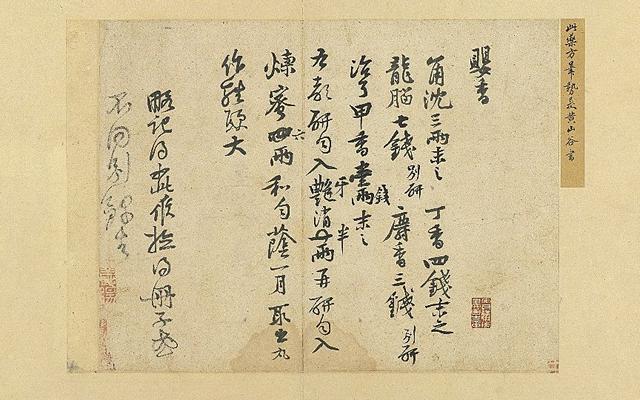 此藥方筆勢黃山谷書
嬰香
角沈三兩末之 丁香四錢末之
龍腦七錢別研 麝香三錢別研
治了甲香壹錢末之
右都研勻入牙消半兩再研勻入
煉蜜六兩和勻蔭一月取出丸
作雞頭大
略記得如此候檢得冊子或
不同別錄去